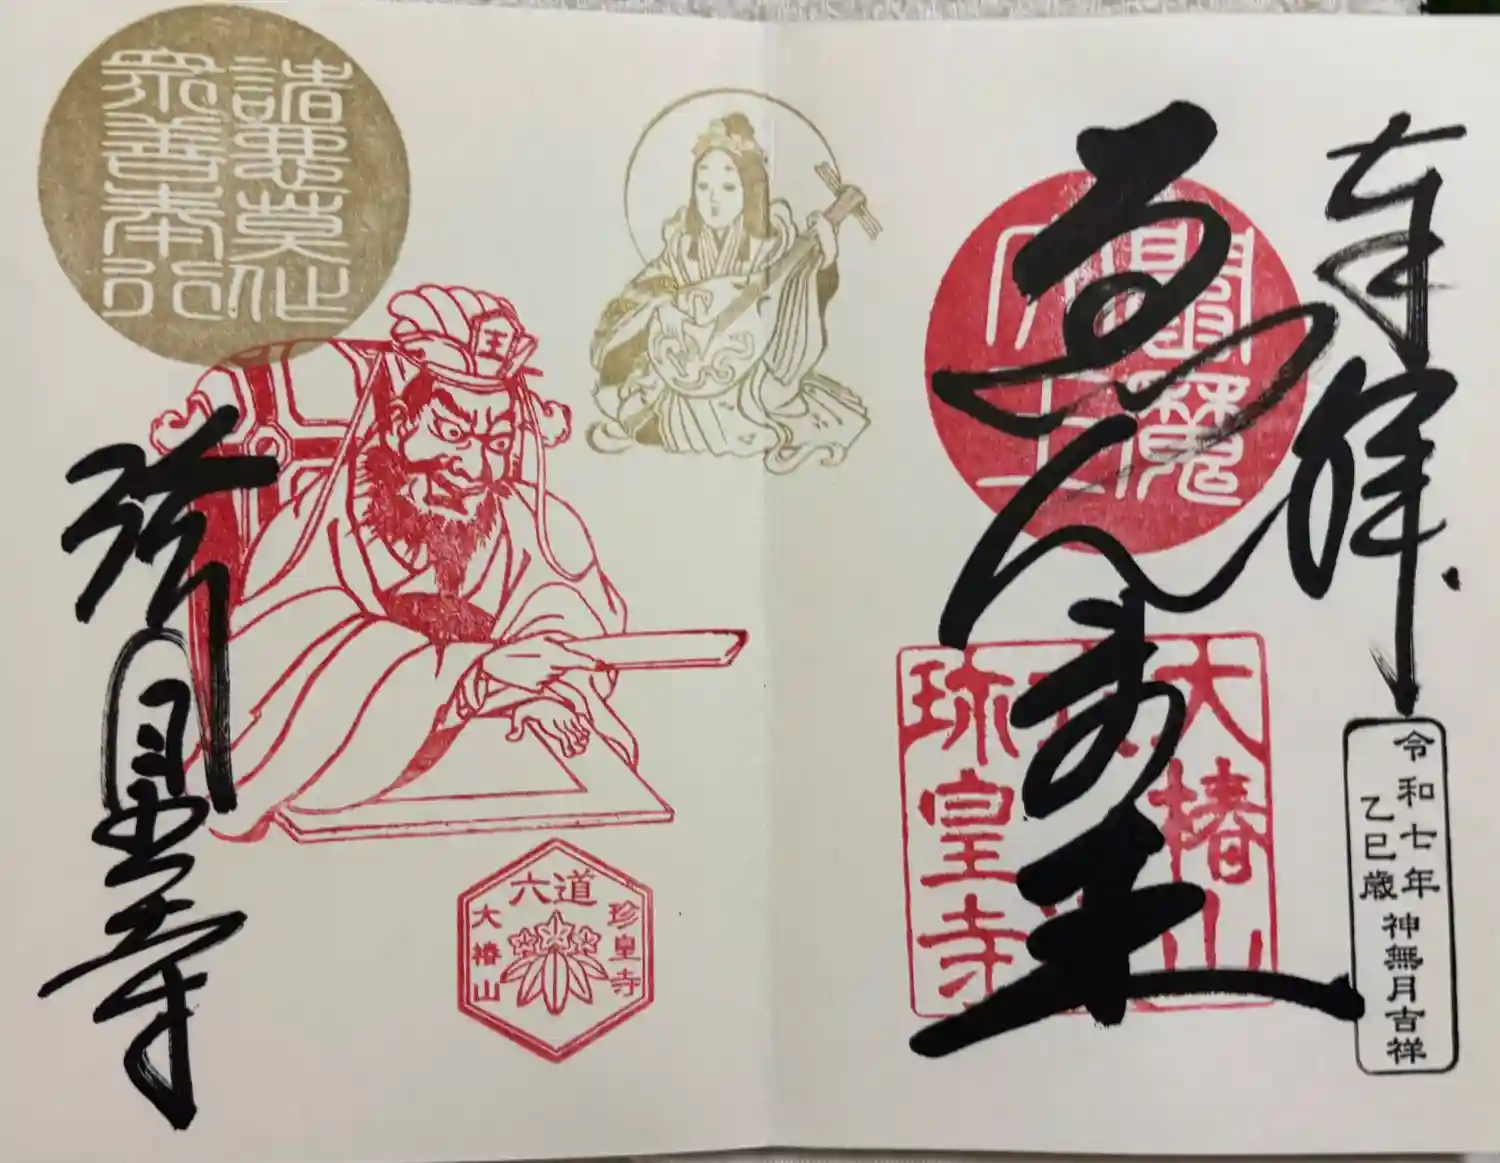 奉拝
令和七年
乙巳歳
神無月吉祥
ゑんま王
閻魔
大王
大椿山
珍皇寺
諸悪莫作
衆善奉行
王
珍皇寺
六道
珍皇寺
大椿山